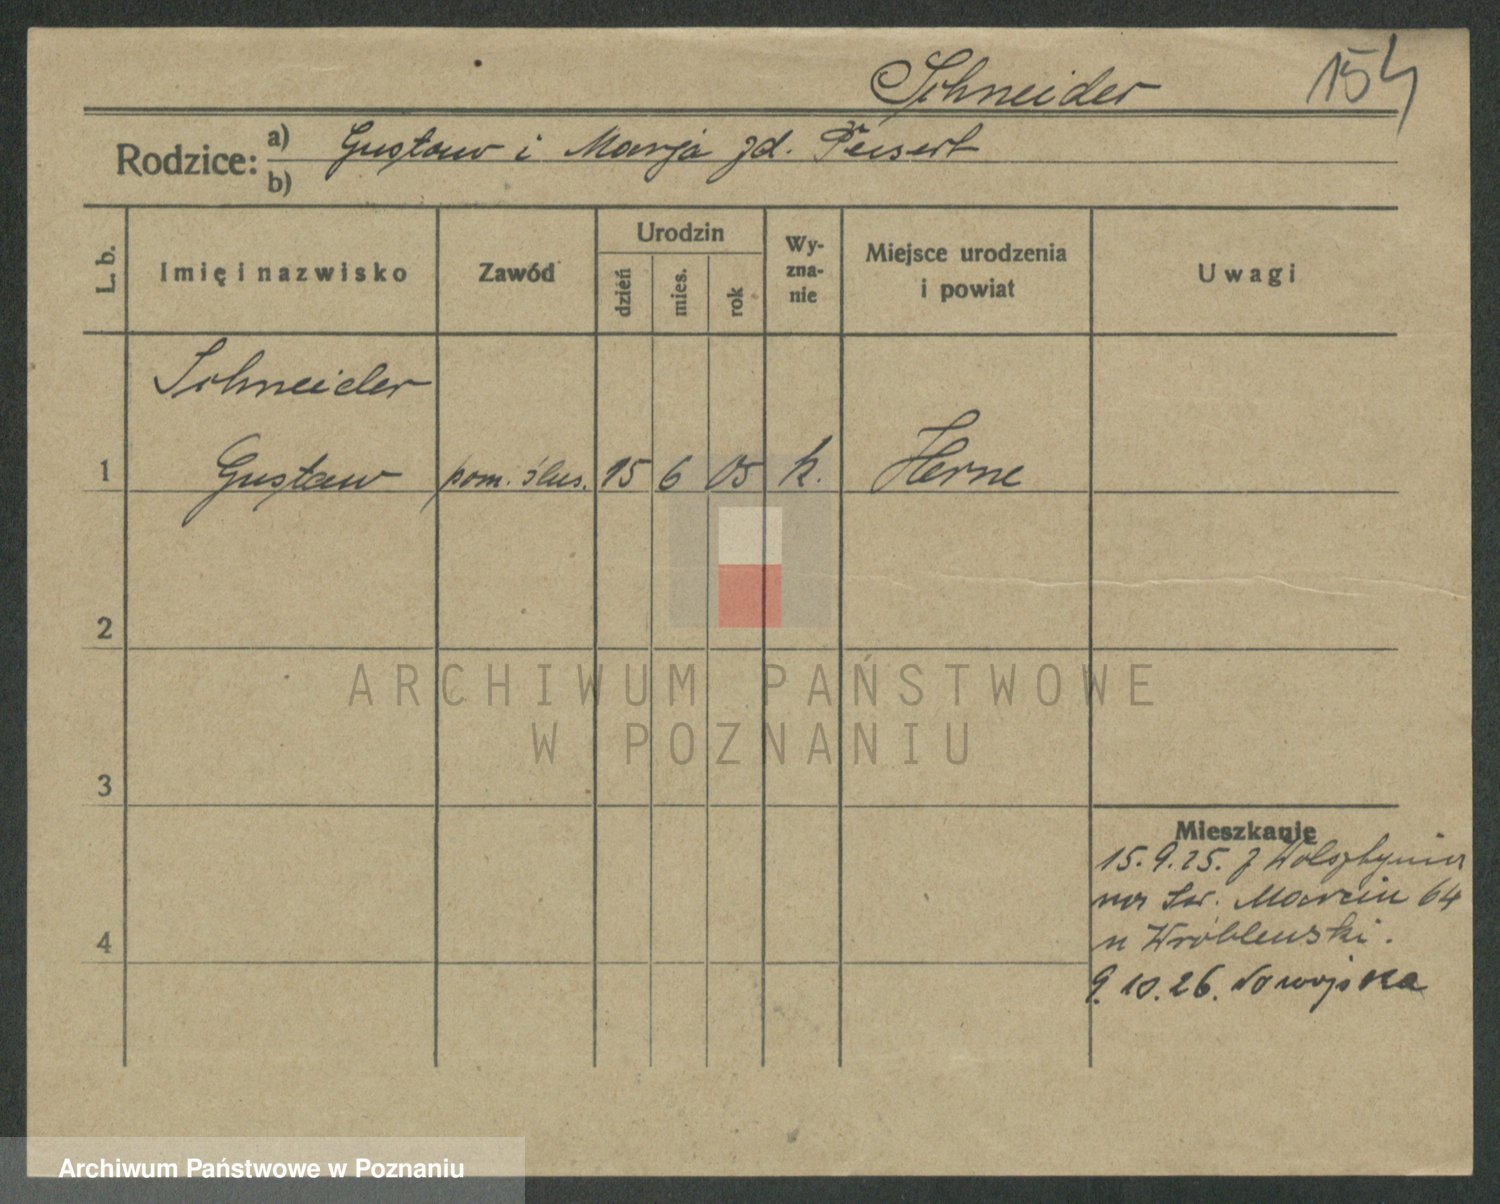 Schneider 154
Rodzice: a) Gustaw i Marja zd. Peisert
b)
L. b.
Imię i nazwisko
Zawód
Urodzin
dzień mies. rok
Wy-
zna-
nie
Miejsce urodzenia
i powiat
Uwagi
Schneider
1 Gustaw pom. ślus. 15 6 05 k. Herne
2
3
4
Mieszkanie
15. 9. 25. z Wolsztyna
na Św. Marcin 64
u Wróblewski.
9. 10. 26. do wojska
ARCHIWUM PAŃSTWOWE
W POZNANIU
Archiwum Państwowe w Poznaniu